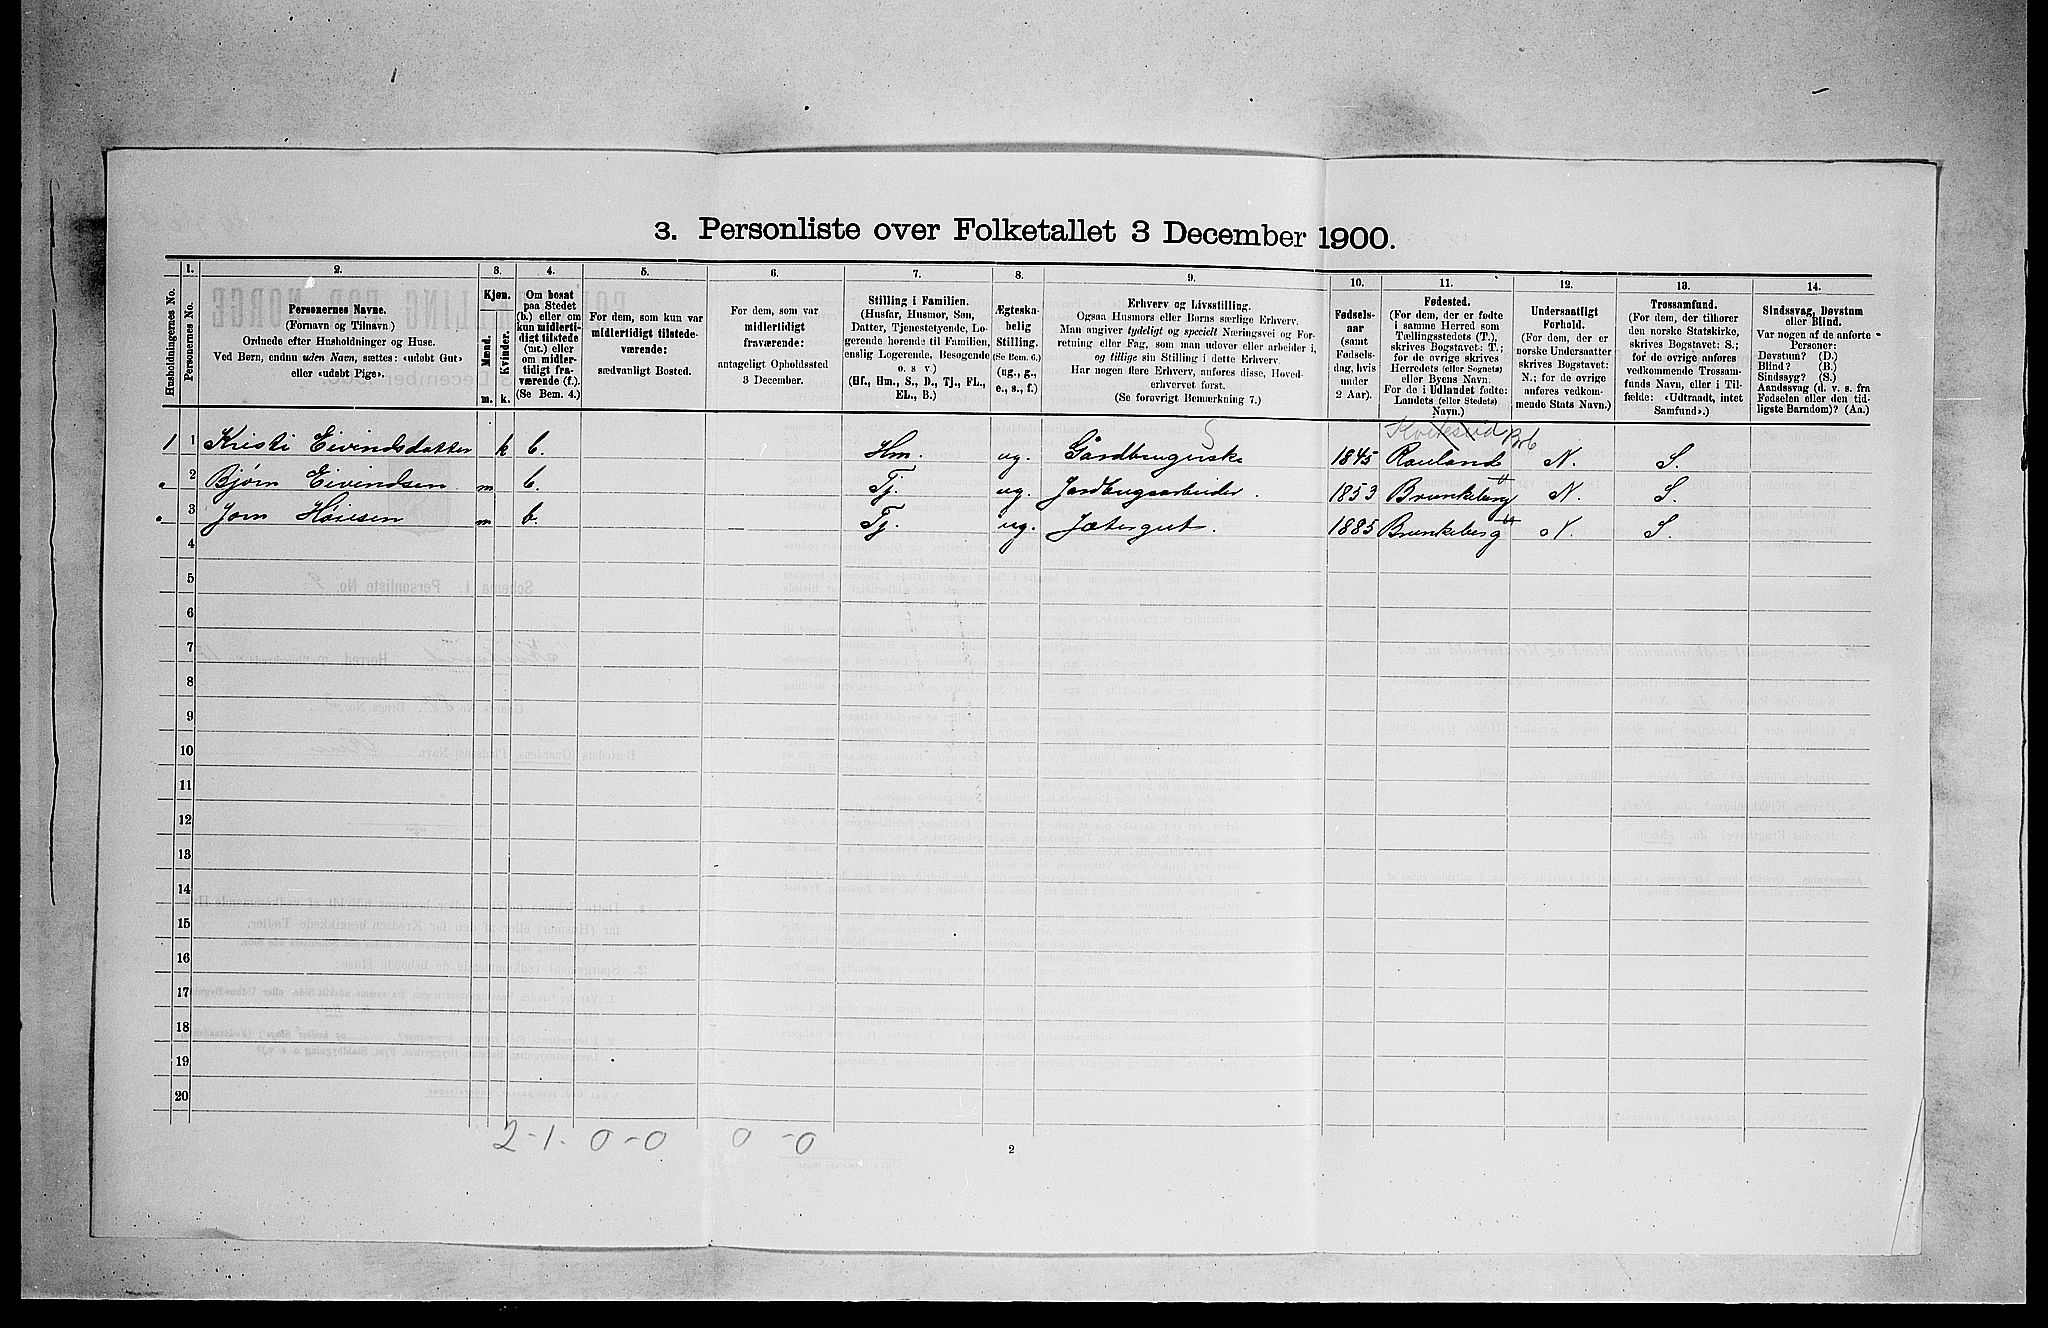 3. Personliste over Folketallet 3 December 1900.
1. 2. 3. 4. 5. 6. 7. 8. 9. 10. 11. 12. 13. 14.
Husholdningernes No.
Personernes No.
Personernes Navne.
(Fornavn og Tilnavn)
Ordnede efter Husholdninger og Huse.
Ved Børn, endnu uden Navn, sættes: «udøbt Gut»
eller «udøbt Pige».
Kjøn.
Mænd.
Kvinder.
m. k.
Om bosat
paa Stedet
(b.) eller om
kun midlerti-
digt tilstede
(mt.) eller
om midler-
tidigt fra-
værende (f.).
(Se Bem. 4.)
For dem, som kun var
midlertidigt tilstede-
værende:
sædvanligt Bosted.
For dem, som var
midlertidigt
fraværende:
antageligt Opholdssted
3 December.
Stilling i Familien.
(Husfar, Husmor, Søn,
Datter, Tjenestetyende, Lo-
gerende hørende til Familien,
enslig Logerende, Besøgende
o. s v.)
(Hf., Hm., S., D., Tj., FL.,
EL., B.)
Ægteska-
belig
Stilling.
(Se Bem. 6.)
(ug., g.,
e., s., f.)
Erhverv og Livsstilling.
Ogsaa Husmors eller Børns særlige Erhverv.
Man angiver tydeligt og specielt Næringsvei og For-
retning eller Fag, som man udøver eller arbeider i,
og tillige sin Stilling i dette Erhverv.
Har nogen flere Erhverv, anføres disse, Hoved-
erhvervet først.
(Se forøvrigt Bemærkning 7.)
Fødsels-
aar
(samt
Fødsels-
dag, hvis
under
2 Aar).
Fødested.
(For dem, der er fødte
i samme Herred som
Tællingsstedets (T.),
skrives Bogstavet: T.;
for de øvrige skrives
Herredets (eller Sognets)
eller Byens Navn.
For de i Udlandet fødte:
Landets (eller Stedets)
Navn.)
Undersaatligt
Forhold.
(For dem, der er
norske Undersaatter
skrives Bogstavet:
N.; for de øvrige
anføres vedkom-
mende Stats Navn.)
Trossamfund.
(For dem, der tilhører
den norske Statskirke,
skrives Bogstavet: S.;
for de øvrige anføres
vedkommende Trossam-
funds Navn, eller i Til-
fælde: «Udtraadt, intet
Samfund».)
Sindssvag, Døvstum
eller Blind.
Var nogen af de anførte
Personer:
Døvstum? (D.)
Blind? (B.)
Sindssyg? (S.)
Aandssvag (d. v. s. fra
Fødselen eller den tid-
ligste Barndom)? (Aa.)
1 1 Kristi Eivindsdatter k b. Hm. ug. 1845 Rauland N. S.
2 Bjørn Eivindsen m b. Tj. ug. Jordbrugsarbeider. 1853 Brunkeberg N. S.
3 Jørn m b. Tj. ug. Jætergut. 1885 Brunkeberg N. S.
4
5
6
7
8
9
10
11
12
13
14
15
16
17
18
19
20
2-1. 0-0 0-0
2